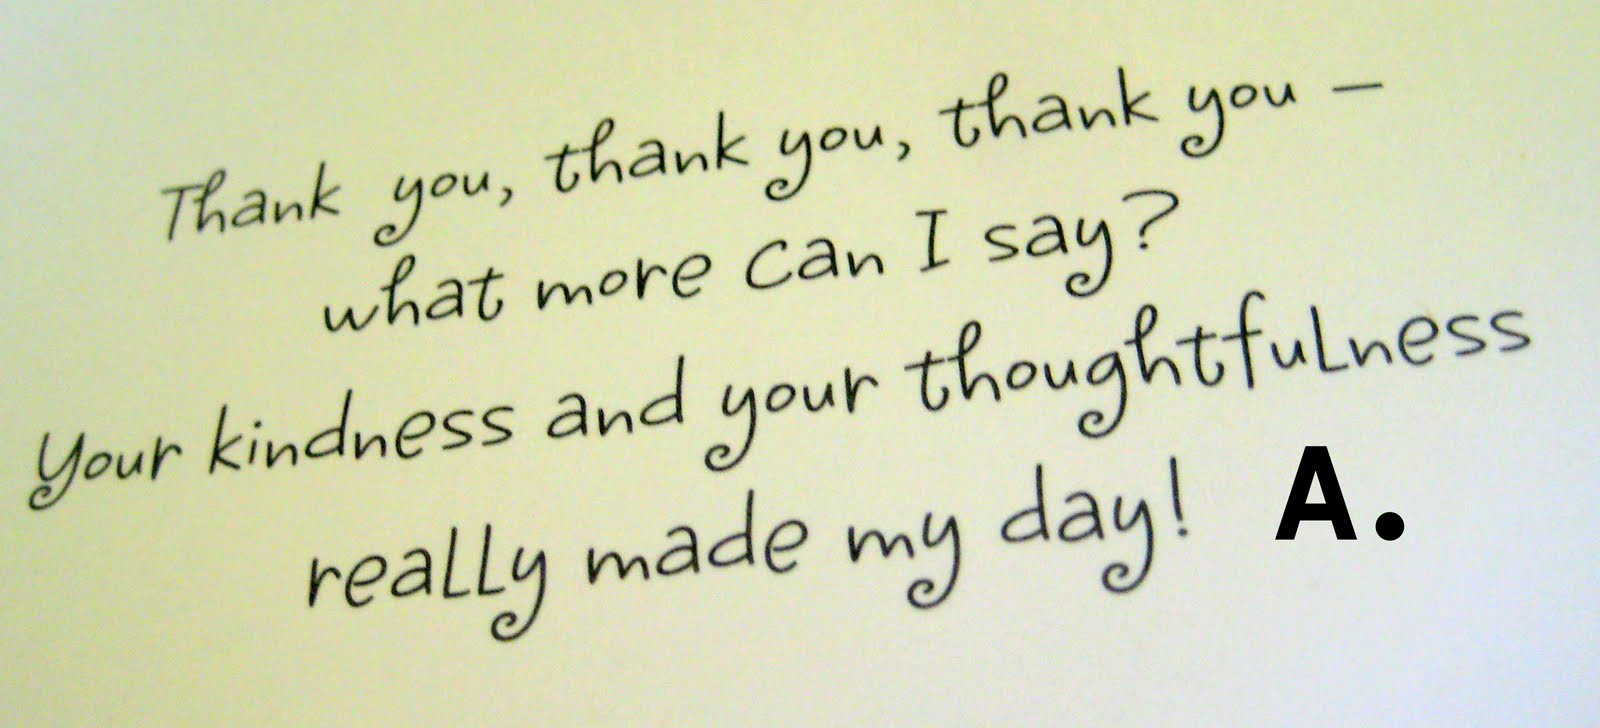 Thank you, thank you, thank you –
what more can I say?
Your kindness and your thoughtfulness
really made my day! A.